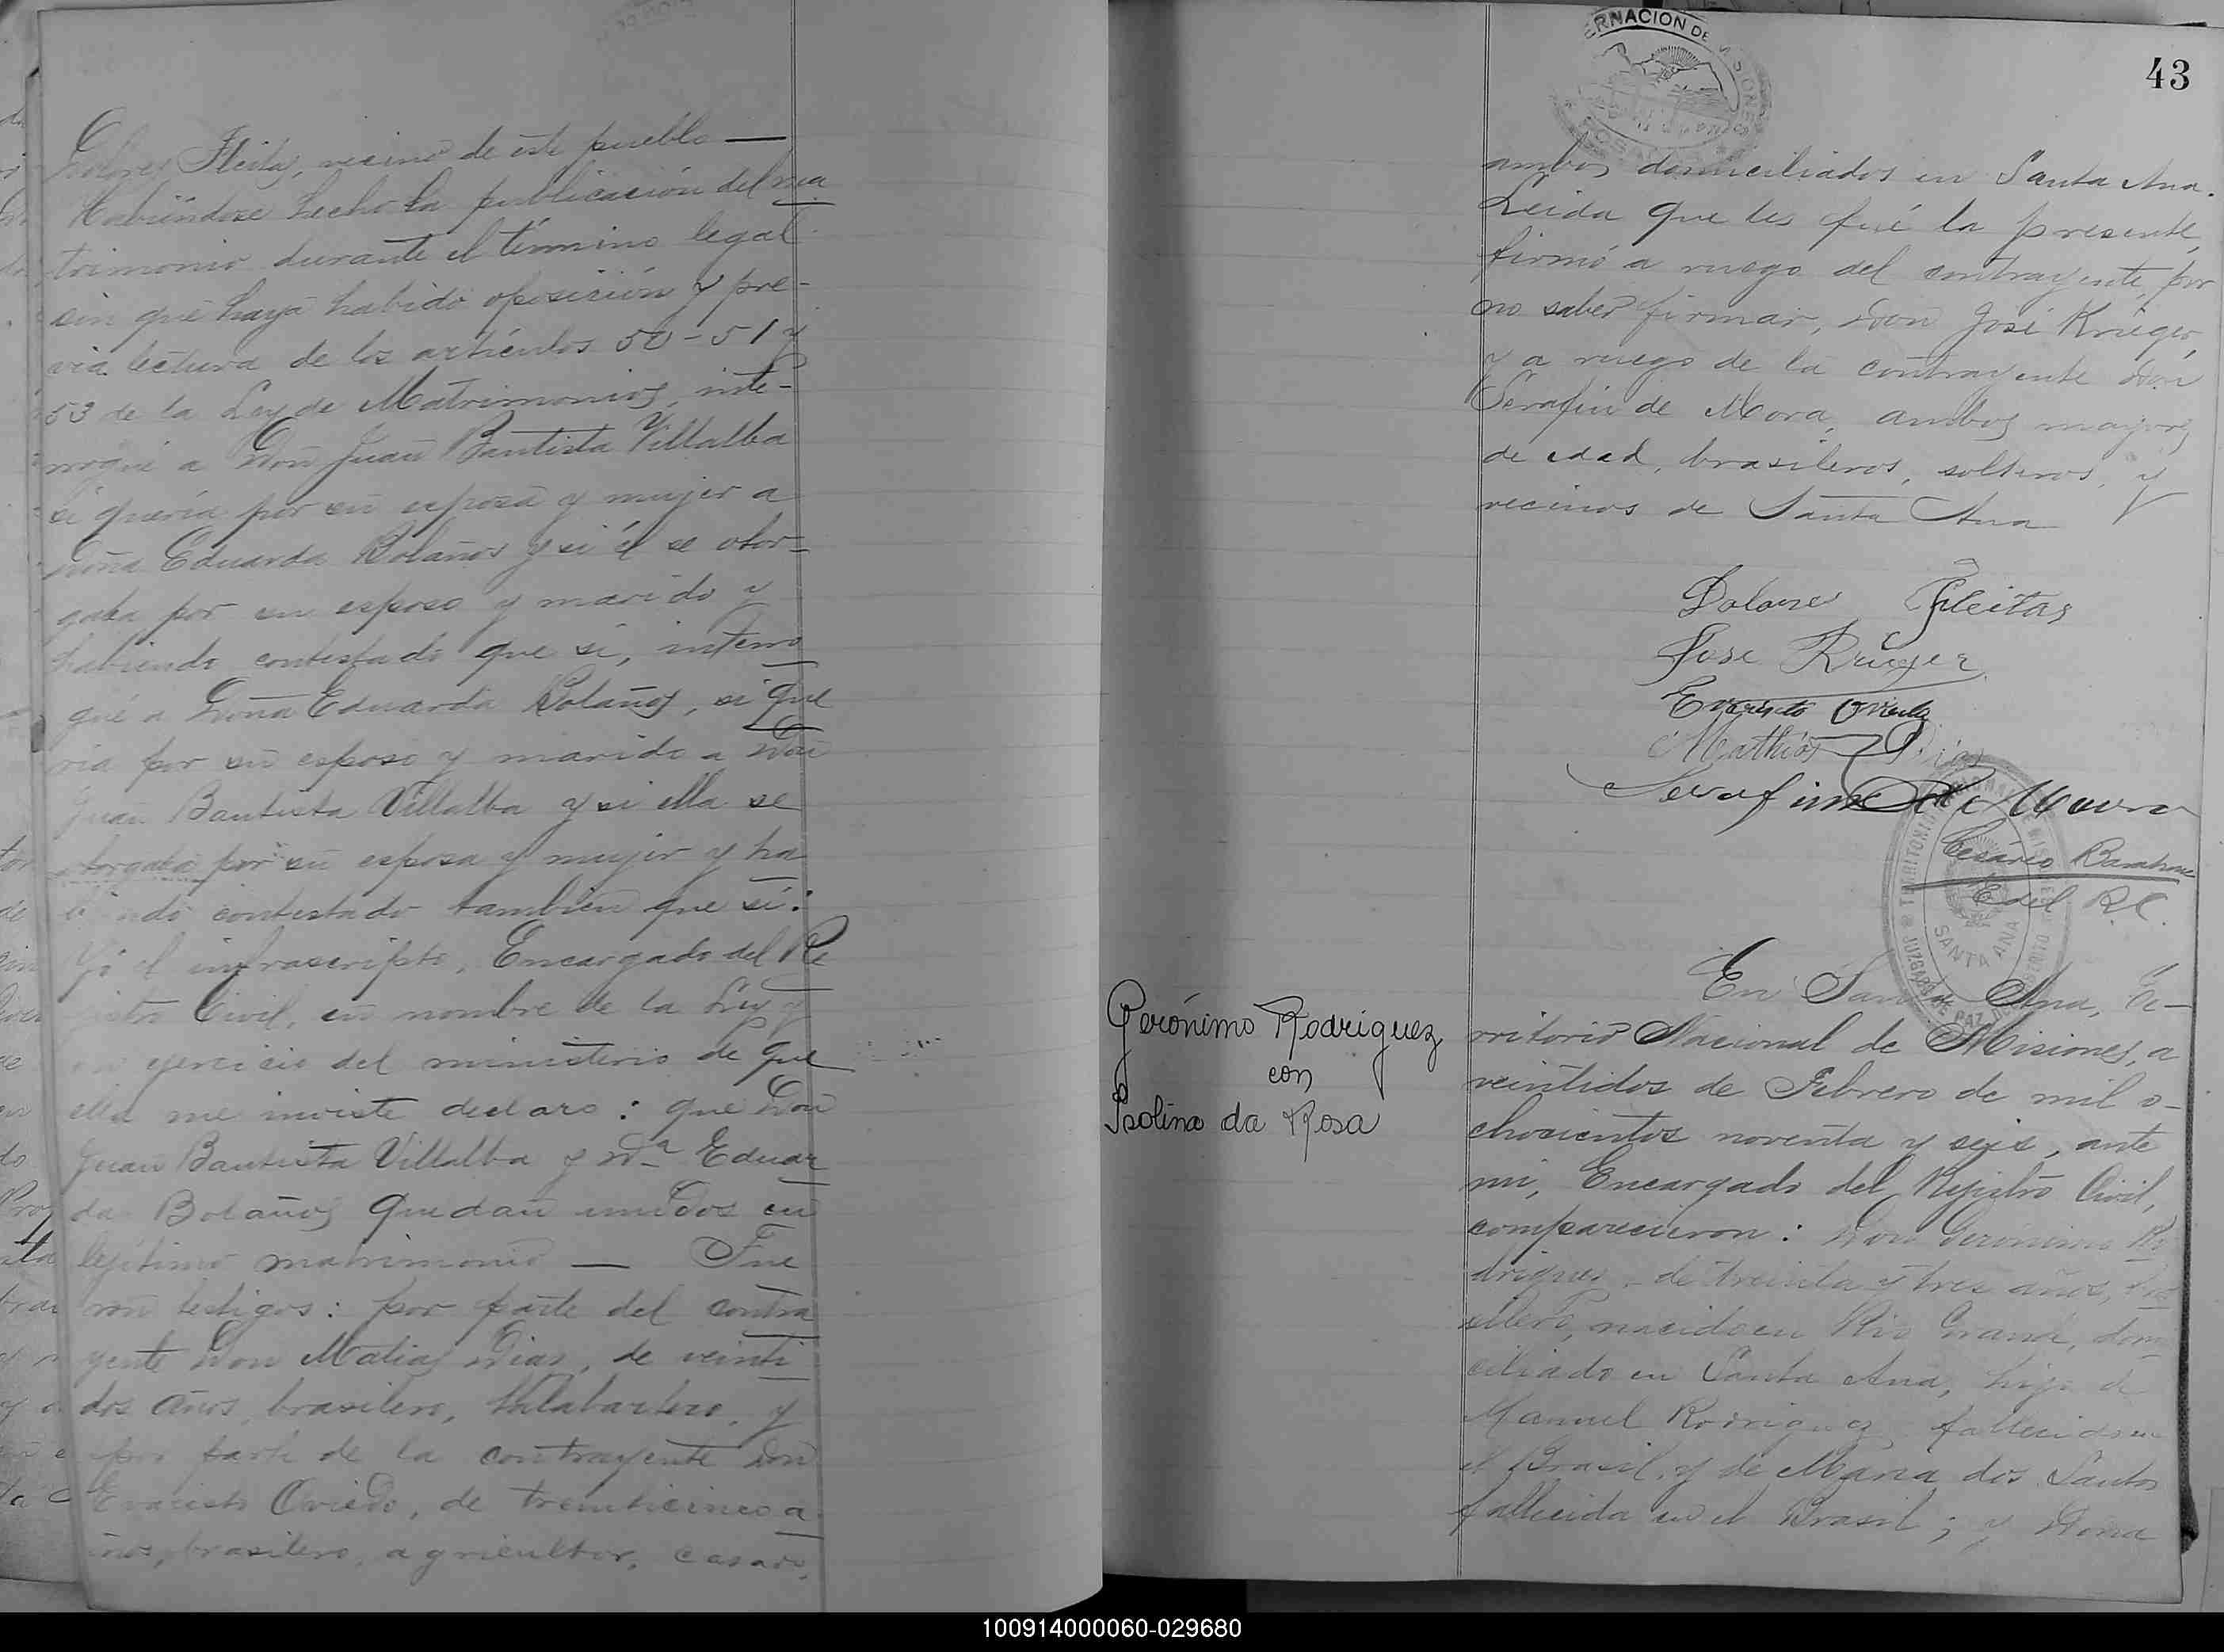 Dolores Fleitas, vecino de este pueblo —
Habiéndose hecho la publicación del ma
trimonio durante el término legal
sin que haya habido oposición y pre-
via lectura de los artículos 50-51 y
53 de la Ley de Matrimonios, inte-
rrogué a Don Juan Bautista Villalba
si quería por su esposa y mujer a
Doña Eduarda Bolaños y si él se otor-
gaba por su esposo y marido y
habiendo contestado que si, interro
gué a Doña Eduarda Bolaños, si que
ria por su esposo y marido a Don
Juan Bautista Villalba y si ella se
otorgaba por su esposa y mujer y ha
biendo contestado tambien que sí:
Yo el infrascripto, Encargado del Re
gistro Civil, en nombre de la Ley y
en ejercicio del ministerio de que
ella me inviste declaro: que Don
Juan Bautista Villalba y Dª Eduar
da Bolaños quedan unidos en
legítimo matrimonio — Fue
ron testigos: por parte del contra
yente Don Matias Dias, de veinti
dos años, brasilero, talabartero, y
por parte de la contrayente Don
Evaristo Oviedo, de treinticinco a
ños, brasilero, agricultor, casado,
ERNACION DE MISIONES
POSADAS
43
ambos domiciliados en Santa Ana.
Leida que les fué la presente,
firmó a ruego del contrayente, por
no saber firmar, Don José Krieger,
y a ruego de la contrayente Don
Serafin de Mora, ambos mayores
de edad, brasileros, solteros, y
vecinos de Santa Ana
Dolores Fleitas
Jose Krieger
Evaristo Oviedo
Mathias Dias
Serafim de Moura
Cesáreo
E del R.C.
JUZGADO DE PAZ
SANTA ANA
Gerónimo Rodriguez
con
Isolina da Rosa
En Santa Ana, Te-
rritorio Nacional de Misiones, a
veintidos de Febrero de mil o-
chocientos noventa y seis, ante
mi, Encargado del Registro Civil,
comparecieron: Don Gerónimo Ro
driguez, de treinta y tres años,
nacido en Rio Grande, domi
ciliado en Santa Ana, hijo de
Manuel Rodriguez, fallecido en
el Brasil, y de Maria dos Santos
fallecida en el Brasil; y Doña
100914000060-029680